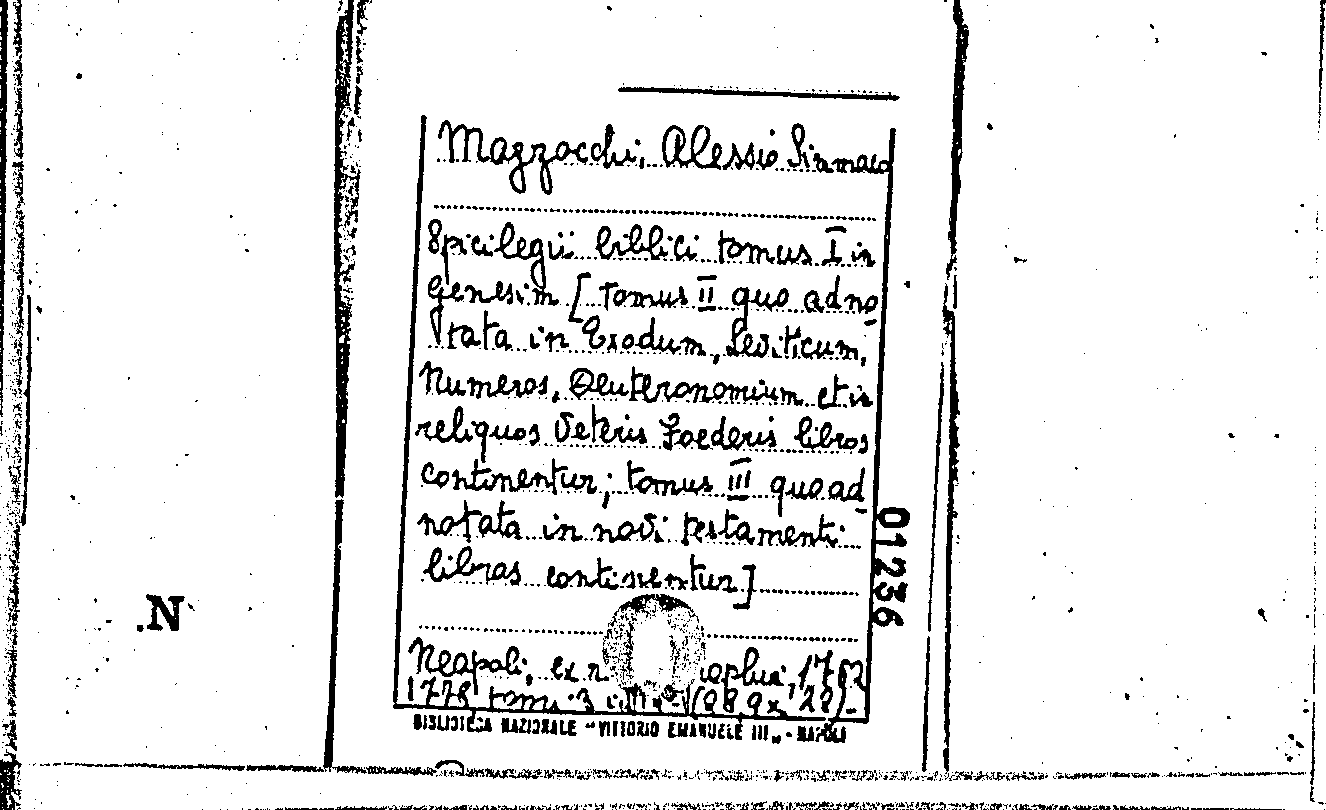 Mazzocchi, Alessio Simmaco
Spicilegii biblici tomus I in
genesim [tomus II quo adno
tata in Exodum, Leviticum,
Numeros, Deuteronomium et in
reliquos Veteris Foederis libros
continentur; tomus III quo ad
notata in novi testamenti
libros continentur]
Neapoli, ex r. 1762
1778 tomi 3
BIBLIOTECA NAZIONALE "VITTORIO EMANUELE III" - NAPOLI
01236
.N